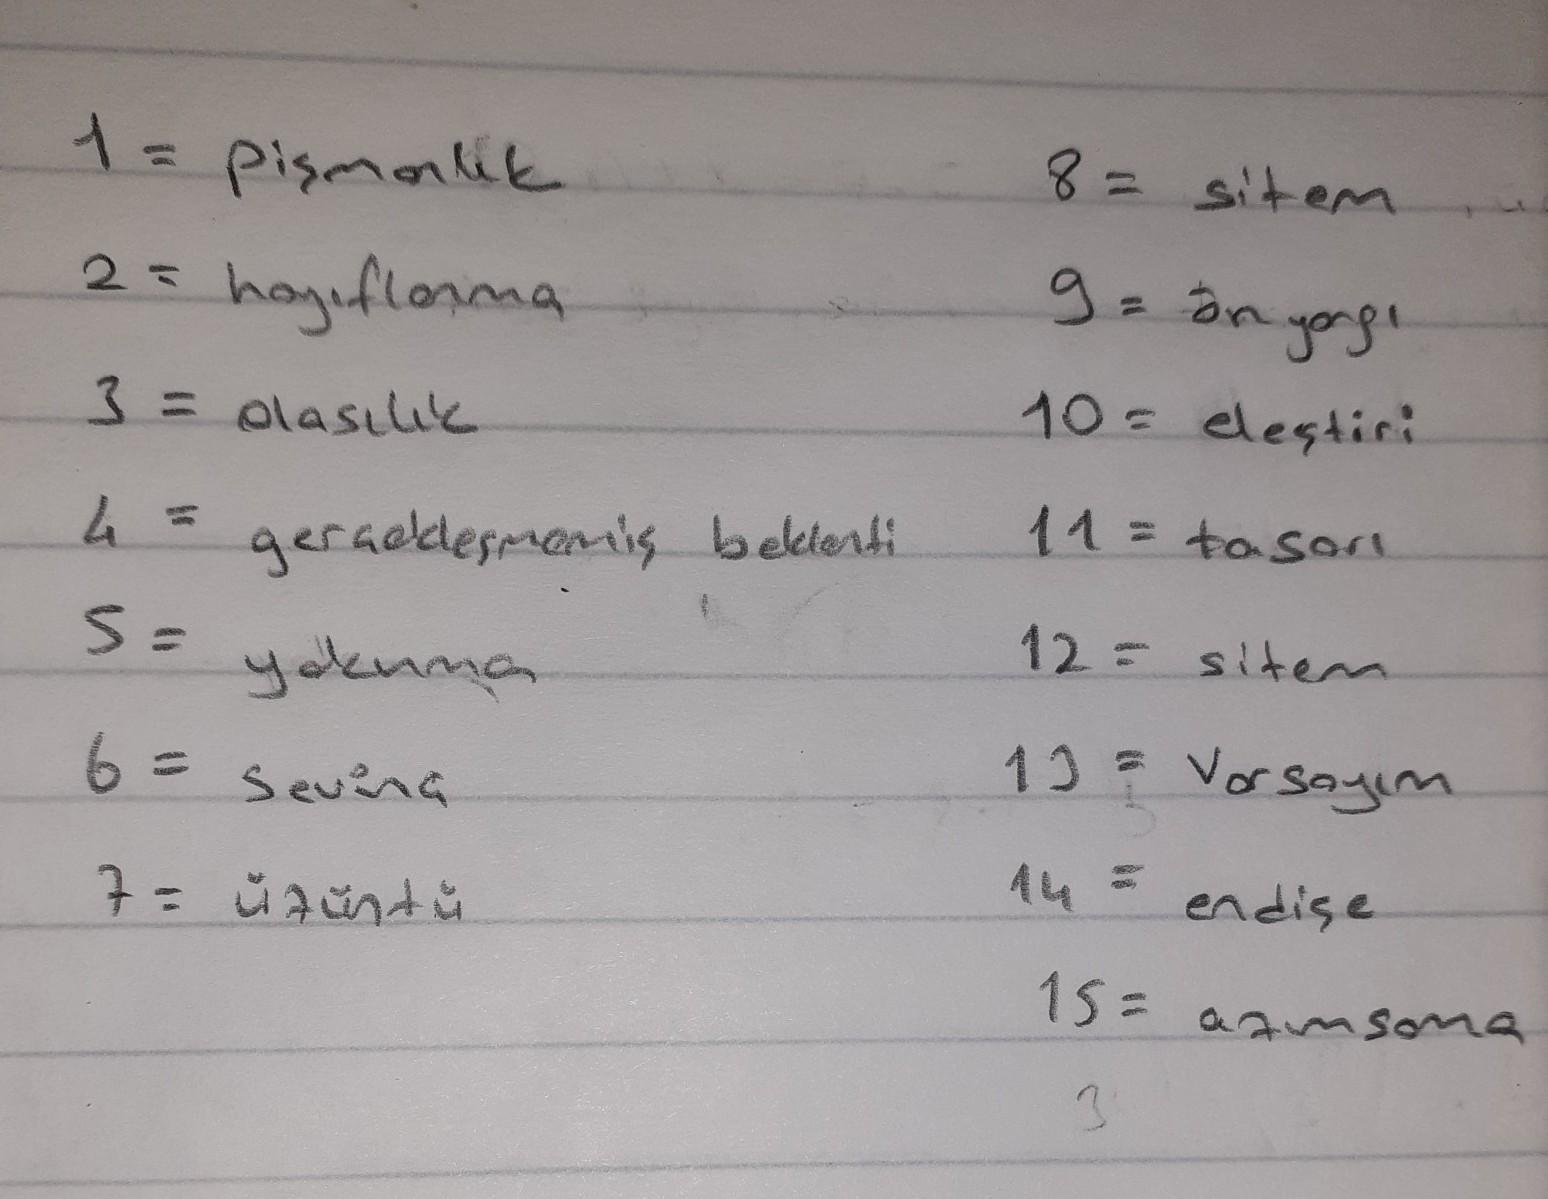 1 = pişmanlık
2 = hayıflanma
3 = olasılık
4 = gerçekleşmemiş beklenti
5 = yakınma
6 = sevinç
7 = üzüntü
8 = sitem
9 = ön yargı
10 = eleştiri
11 = tasarı
12 = sitem
13 = Varsayım
14 = endişe
15 = azımsama
3